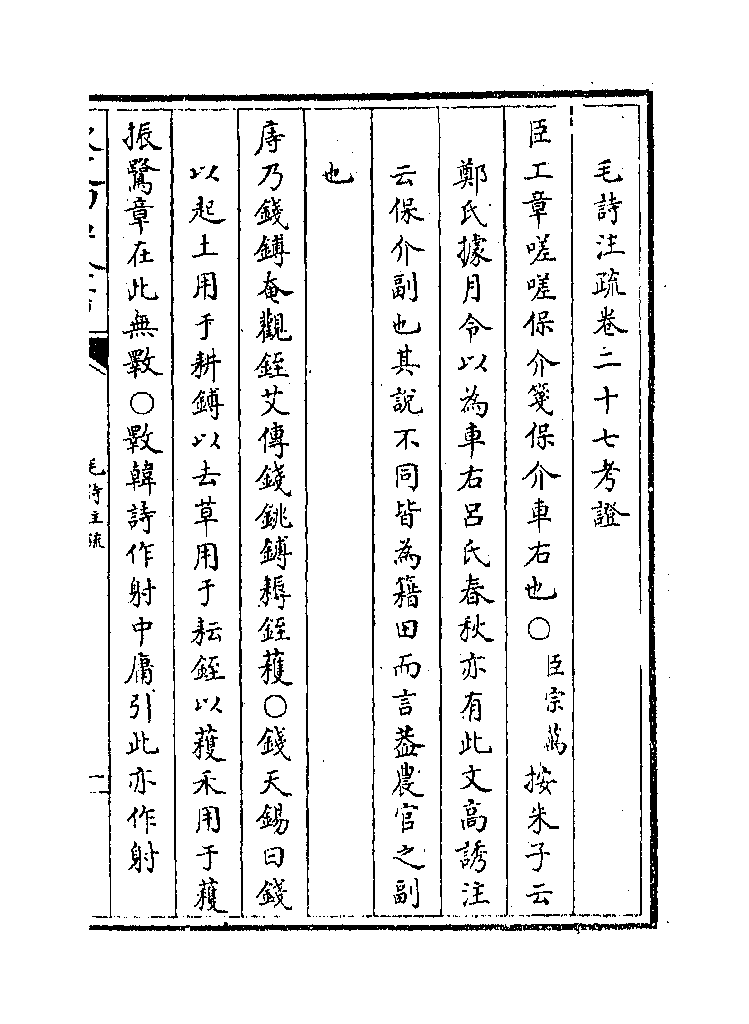 毛詩注疏卷二十七考證
臣工章嗟嗟保介箋保介車右也○臣宗萬按朱子云
鄭氏據月令以為車右呂氏春秋亦有此文高誘注
云保介副也其說不同皆為籍田而言葢農官之副
也
庤乃錢鎛奄觀銍艾傳錢銚鎛耨銍穫○錢天錫曰錢
以起土用于耕鎛以去草用于耘銍以穫禾用于穫
振鷺章在此無斁○斁韓詩作射中庸引此亦作射
毛詩注疏
一